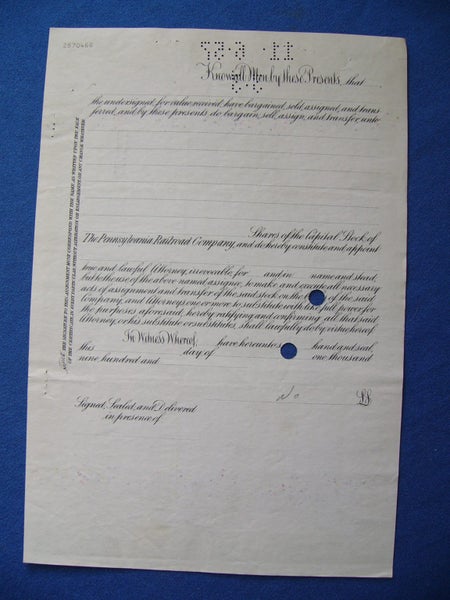 2570466
Know all Men by these Presents, that
the undersigned, for value received, have bargained, sold, assigned, and trans-
ferred, and by these presents do bargain, sell, assign, and transfer, unto
Shares of the Capital Stock of
The Pennsylvania Railroad Company, and do hereby constitute and appoint
true and lawful Attorney, irrevocable for and in name and stead,
but to the use of the above named assignee, to make and execute all necessary
acts of assignment and transfer of the said stock on the of the said
Company, and Attorneys one or more to substitute with like full power for
the purposes aforesaid, hereby ratifying and confirming all that said
Attorney, or his substitute or substitutes, shall lawfully do by virtue hereof.
In Witness Whereof, have hereunto hand and seal,
this day of one thousand
nine hundred and
No
L.S.
Signed, Sealed, and Delivered
in presence of
NOTICE: THE SIGNATURE TO THIS ASSIGNMENT MUST CORRESPOND WITH THE NAME AS WRITTEN UPON THE FACE
OF THE CERTIFICATE, IN EVERY PARTICULAR, WITHOUT ALTERATION OR ENLARGEMENT, OR ANY CHANGE WHATEVER.